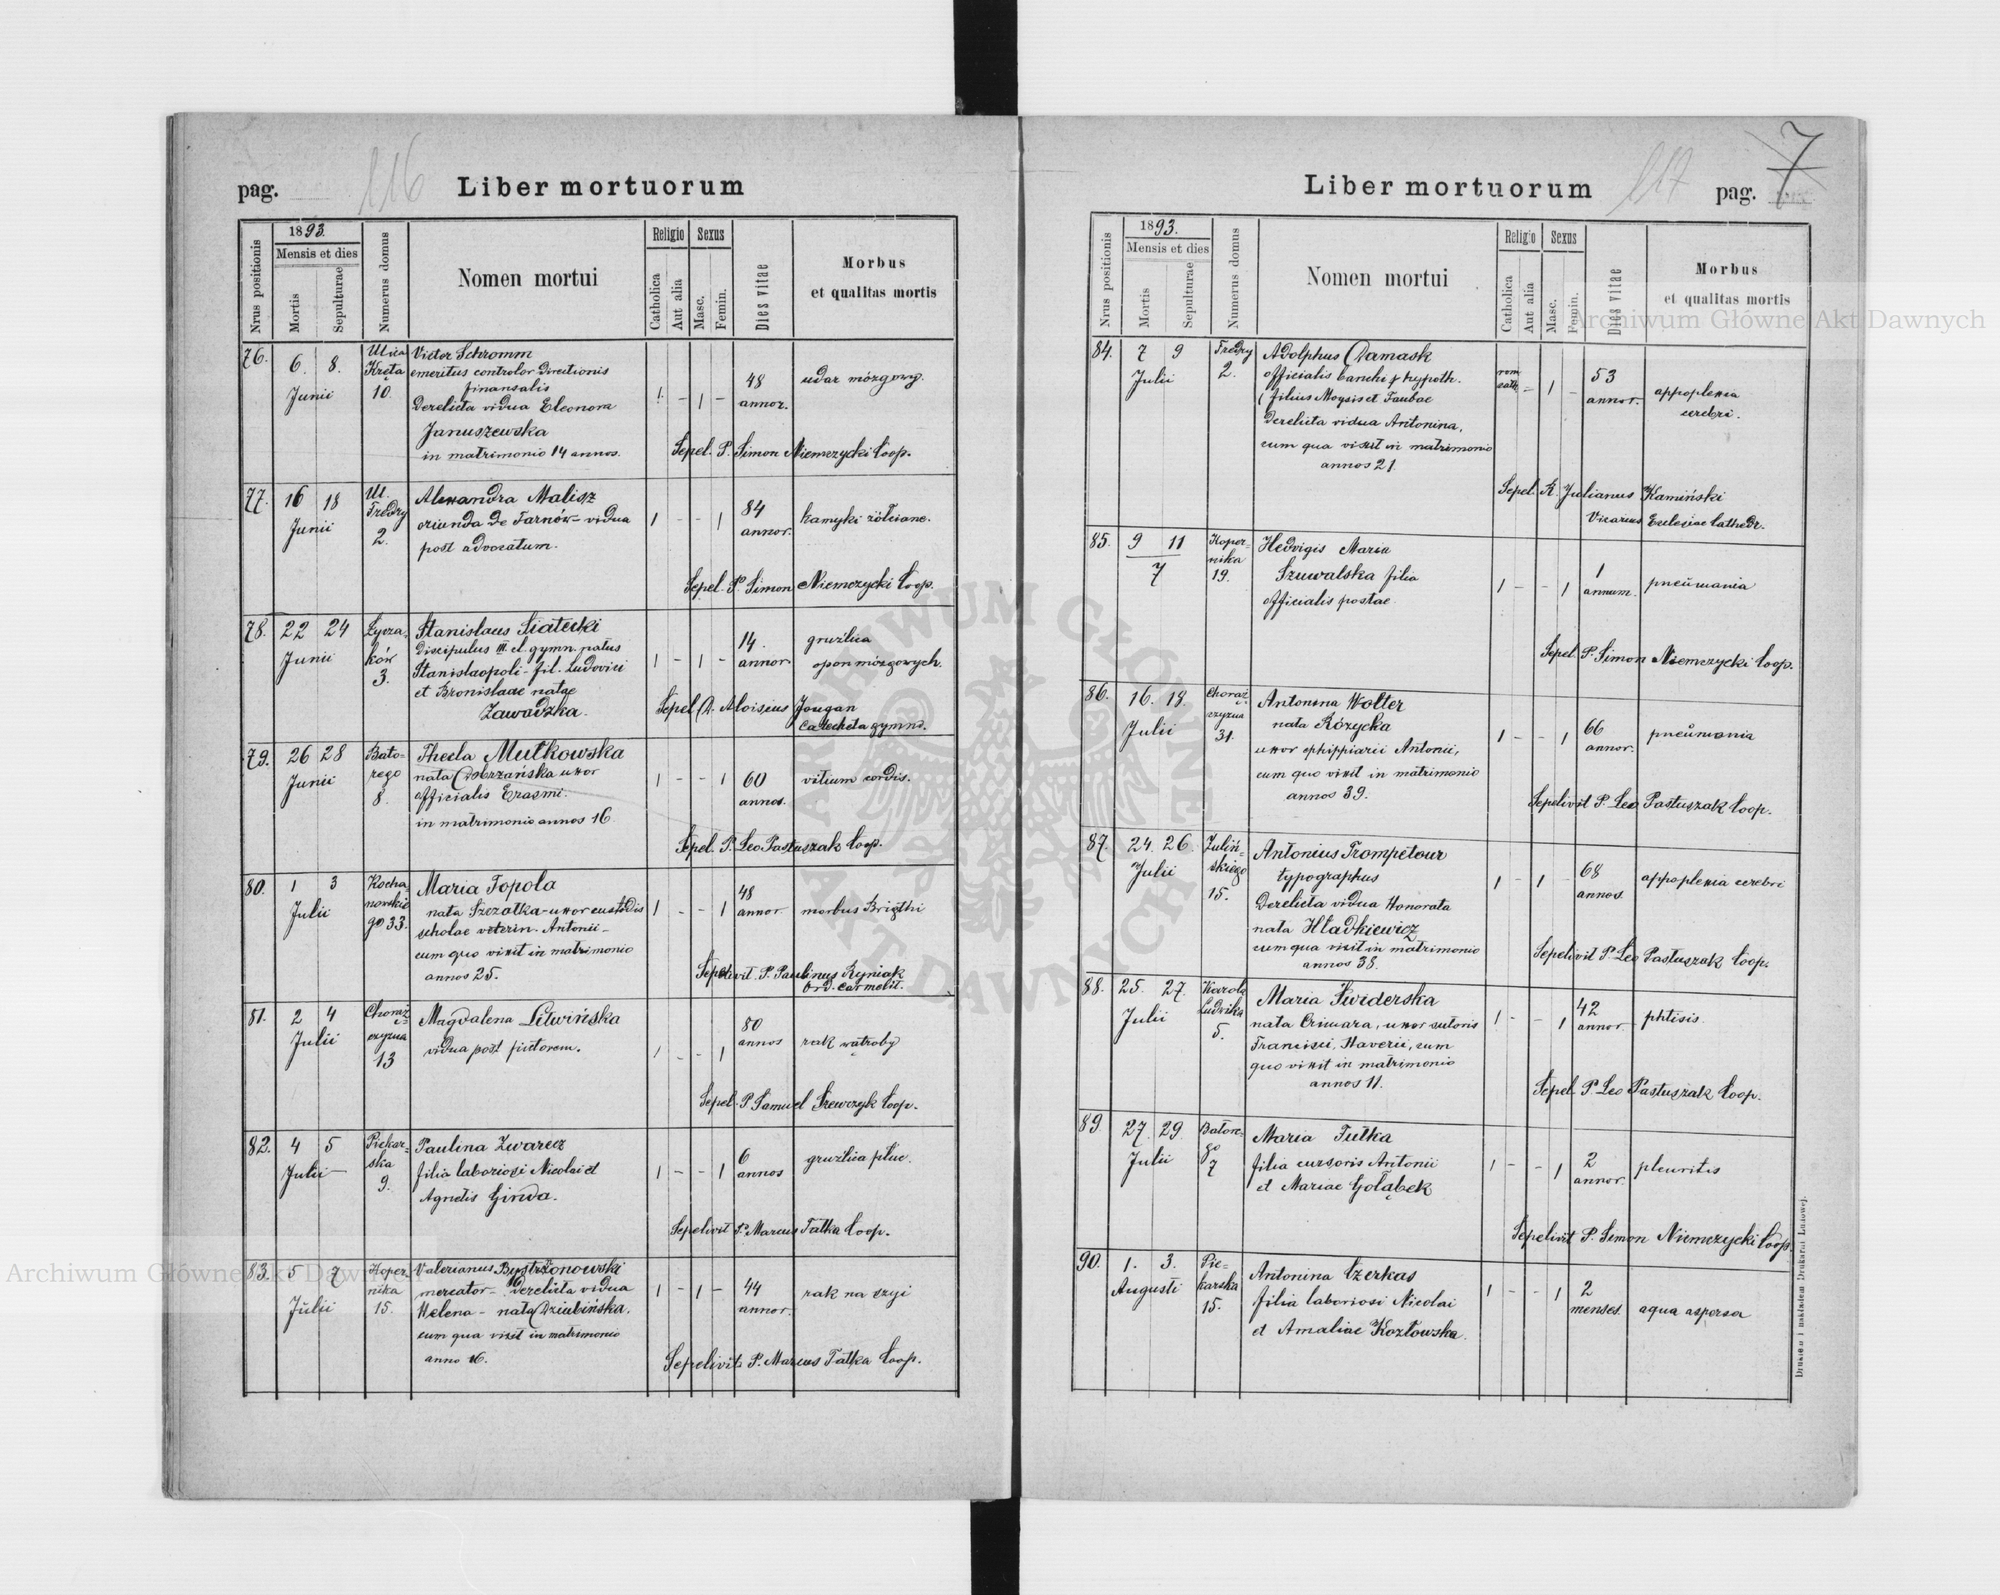 pag. 116 Liber mortuorum
Nrus positionis
1893.
Mensis et dies
Mortis
Sepulturae
Numerus domus
Nomen mortui
Religio
Catholica
Aut alia
Sexus
Masc.
Femin.
Dies vitae
Morbus
et qualitas mortis
76. 6. 8. Junii
Ulica Kręta 10.
Victor Schromm
emeritus controlor directionis
finansalis
Derelicta vidua Eleonora
Januszewska
in matrimonio 14 annos.
1. – 1 –
48 annor.
udar mózgowy.
Sepel. P. Simon Niemczycki Coop.
77. 16 18 Junii
Ul. Fredry 2.
Alexandra Malisz
oriunda de Tarnów – vidua
post advocatum.
1 – – 1
84 annor.
kamyki żółciane.
Sepel. P. Simon Niemczycki Coop.
78. 22 24 Junii
Łycza-
ków 3.
Stanislaus Siatecki
discipulus III cl. gymn. natus
Stanislaopoli – fil. Ludovici
et Bronislaae natae
Zawadzka.
1 – 1 –
14. annor.
gruźlica
opon mózgowych.
Sepel. Aloisius Jougan
Catecheta gymn.
79. 26 28 Junii
Bato-
rego 8.
Thecla Mułkowska
nata Dobrzańska uxor
officialis Erasmi.
in matrimonio annos 16.
1 – – 1
60 annos.
vitium cordis.
Sepel. P. Leo Pastuszak Coop.
80. 1 3 Julii
Kocha-
nowskie
go 33.
Maria Topola
nata Szczotka – uxor custodis
scholae veterin. Antonii –
cum quo vixit in matrimonio
annos 25.
1 – – 1
48 annor.
morbus Brigthi
Sepelivit. P. Paulinus Ryniak
Ord. Carmelit.
81. 2 4 Julii
Chorąż-
czyzna
13
Magdalena Litwińska
vidua post pictorem.
1 – – 1
80 annos
rak wątroby
Sepel. P. Samuel Szewczyk Coop.
82. 4 5 Julii –
Piekar-
ska 9.
Paulina Zwarcz
filia laboriosi Nicolai et
Agnetis Ginda.
1 – – 1
6 annos
gruźlica płuc.
Sepelivit P. Marcus Tatka Coop.
83. 5 7 Julii
Koper-
nika 15.
Valerianus Bystrzonowski
mercator – derelicta vidua
Helena – nata Dziubińska.
cum qua vixit in matrimonio
anno 16.
1 – 1 –
44 annor.
rak na szyi
Sepelivit P. Marcus Tatka Coop.
Liber mortuorum 117 pag. 7
Nrus positionis
1893.
Mensis et dies
Mortis
Sepulturae
Numerus domus
Nomen mortui
Religio
Catholica
Aut alia
Sexus
Masc.
Femin.
Dies vitae
Morbus
et qualitas mortis
84. 7 9 Julii
Fredry 2.
Adolphus Damask
officialis banchi hypoth.
(filius Moysis et Taubae
Derelicta vidua Antonina,
cum qua vixit in matrimonio
annos 21.
rom cath – 1 –
53 annor.
appoplexia
cerebri.
Sepel. X. Julianus Kamiński
Vicarius Ecclesiae Cathedr.
85. 9 11
7
Koper-
nika
19.
Hedvigis Maria
Szuwalska filia
officialis postae
1 – – 1
1 annum.
pneumania
Sepel. P. Simon Niemczycki Coop.
86. 16. 18. Julii
Chorąż-
czyzna
31.
Antonina Wolter
nata Rózycka
uxor ephippiarii Antonii,
cum quo vixit in matrimonio
annos 39.
1 – – 1
66 annor.
pneumonia
Sepelivit P. Leo Pastuszak Coop.
87. 24. 26. Julii
Zuliń-
skiego
15.
Antonius Trompetour
typographus
Derelicta vidua Honorata
nata Hładkiewicz
cum qua vixit in matrimonio
annos 38.
1 – 1 –
68 annos.
appoplexia cerebri
Sepelivit P. Leo Pastuszak Coop.
88. 25. 27. Julii
Karola
Ludwika
5.
Maria Świderska
nata Criwara, uxor sutoris
Francisci, Xaverii, cum
quo vixit in matrimonio
annos 11.
1 – – 1
42 annor.
phtisis.
Sepel. P. Leo Pastuszak Coop.
89. 27. 29. Julii
Batore-
go
7
Maria Tutka
filia cursoris Antonii
et Mariae Gołąbek
1 – – 1
2 annor.
pleuritis
Sepelivit P. Simon Niemczycki Coop.
90. 1. 3. Augusti
Pie-
karska
15.
Antonina Czerkas
filia laboriosi Nicolai
et Amaliae Kozłowska.
1 – – 1
2 menses.
aqua aspersa
Drukiem i nakładem Drukarni Ludowej.
Archiwum Główne Akt Dawnych
Archiwum Główne Akt Dawnych
Archiwum Główne Akt Dawnych
ARCHIWUM GŁÓWNE AKT DAWNYCH